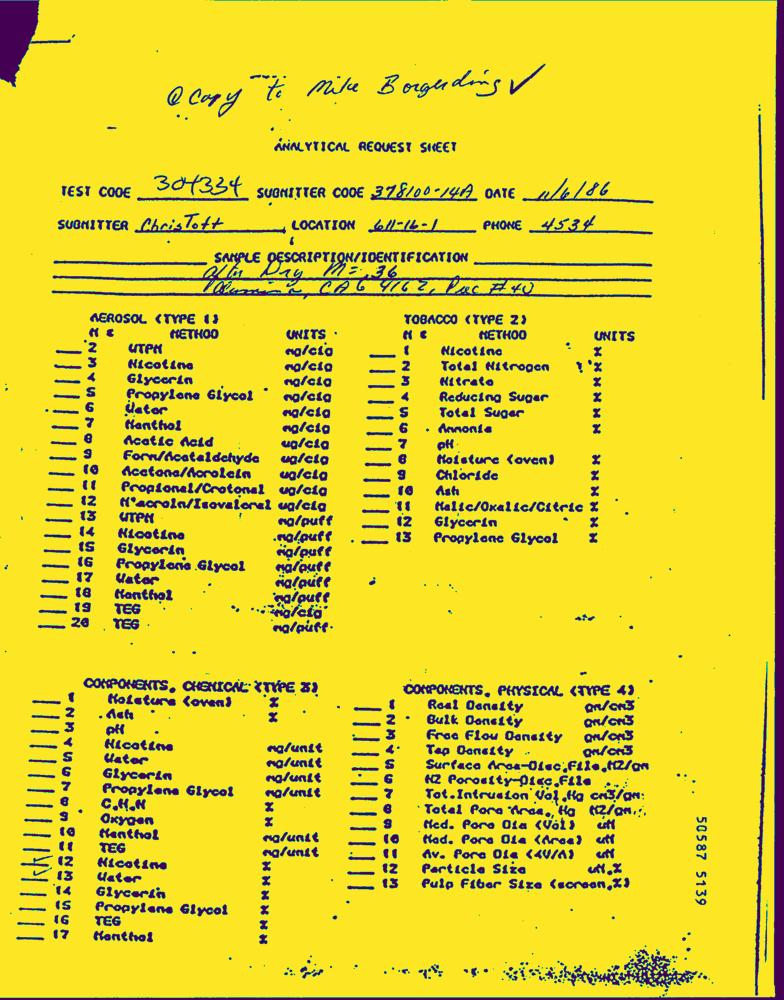 @ Copy to Mike Borgerding ✓
ANALYTICAL REQUEST SHEET
TEST CODE 304334 SUBMITTER CODE 378100-14A DATE 11/6/86
SUBMITTER Chris Tott LOCATION 611-16-1 PHONE 4534
SAMPLE DESCRIPTION/IDENTIFICATION
Dry M=.36
Alumina, CAG 4162, Puc #40
AEROSOL (TYPE 1)
METHOD UNITS
2 WTPM mg/cig
3 Nicotine mg/cig
4 Glycerin mg/cig
5 Propylene Glycol mg/cig
6 Water mg/cig
7 Menthol mg/cig
8 Acetic Acid ug/cig
9 Form/Acetaldehyde ug/cig
10 Acetone/Acrolein ug/cig
11 Propional/Crotonal ug/cig
12 M'acroln/Isovaleral ug/cig
13 WTPM mg/puff
14 Nicotine mg/puff
15 Glycerin mg/puff
16 Propylene Glycol mg/puff
17 Water mg/puff
18 Menthol mg/puff
19 TEG mg/cig
20 TEG mg/puff
TOBACCO (TYPE 2)
METHOD UNITS
1 Nicotine %
2 Total Nitrogen %
3 Nitrate %
4 Reducing Sugar %
5 Total Sugar %
6 Ammonia %
7 pH
8 Moisture (oven) %
9 Chloride %
10 Ash %
11 Malic/Oxalic/Citric %
12 Glycerin %
13 Propylene Glycol %
COMPONENTS, CHEMICAL (TYPE 3)
1 Moisture (oven) %
2 Ash %
3 pH
4 Nicotine mg/unit
5 Water mg/unit
6 Glycerin mg/unit
7 Propylene Glycol mg/unit
8 C,H,N %
9 Oxygen %
10 Menthol mg/unit
11 TEG mg/unit
12 Nicotine %
13 Water %
14 Glycerin %
15 Propylene Glycol %
16 TEG %
17 Menthol %
COMPONENTS, PHYSICAL (TYPE 4)
1 Real Density gm/cm3
2 Bulk Density gm/cm3
3 Free Flow Density gm/cm3
4 Tap Density gm/cm3
5 Surface Area-Disc,File,M2/gm
6 N2 Porosity-Disc,File
7 Tot.Intrusion Vol,Hg cm3/gm
8 Total Pore Area, Hg M2/gm
9 Med. Pore Dia (Vol) uM
10 Med. Pore Dia (Area) uM
11 Av. Pore Dia (4V/A) uM
12 Particle Size uM,%
13 Pulp Fiber Size (screen,%)
50587 5139